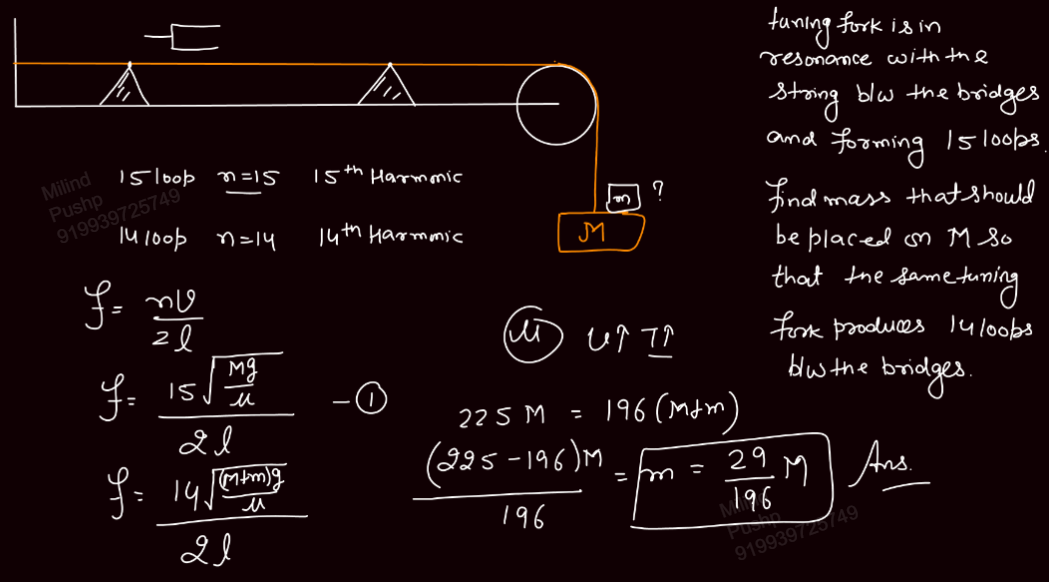 tuning fork is in
resonance with the
string b/w the bridges
and forming 15 loops.
find mass that should
be placed on M so
that the same tuning
fork produces 14 loops
b/w the bridges.
m ?
M
15 loop n=15 15th Harmonic
14 loop n=14 14th Harmonic
f = nv/2l
f = 15√(Mg/μ)/2l - ①
f = 14√((M+m)g/μ)/2l
μ v↑ T↑
225 M = 196 (M+m)
(225-196)M/196 = m = 29/196 M Ans.
Milind
Pushp
919939725749
Milind
Pushp
919939725749